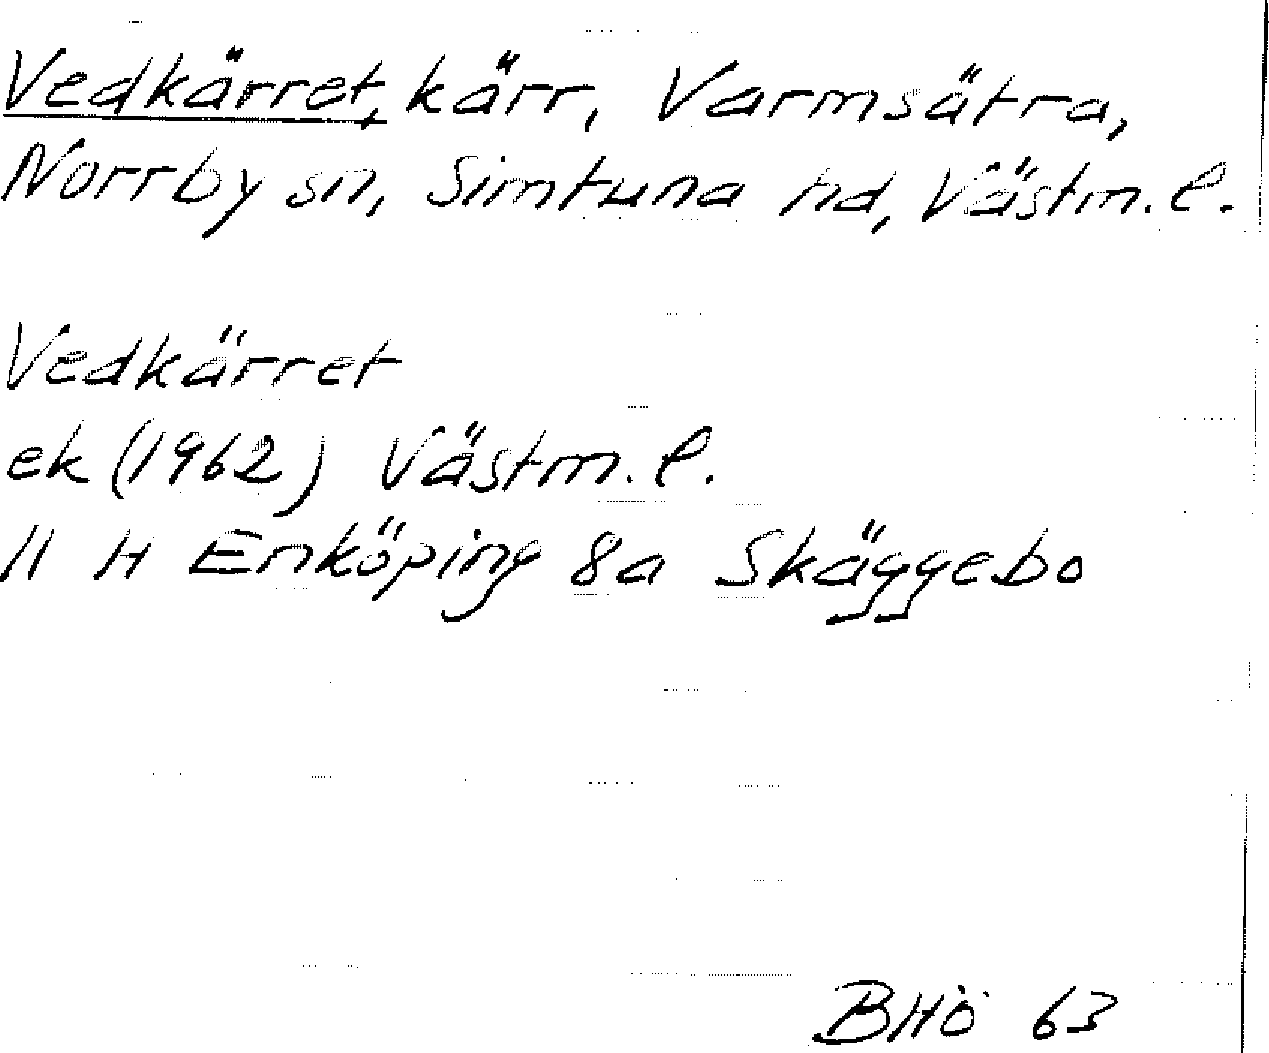 Vedkärret, kärr, Varmsätra,
Norrby sn, Simtuna hd, Västm. l.
Vedkärret
ek (1962) Västm. l.
11 H Enköping 8a Skäggebo
BHÖ 63